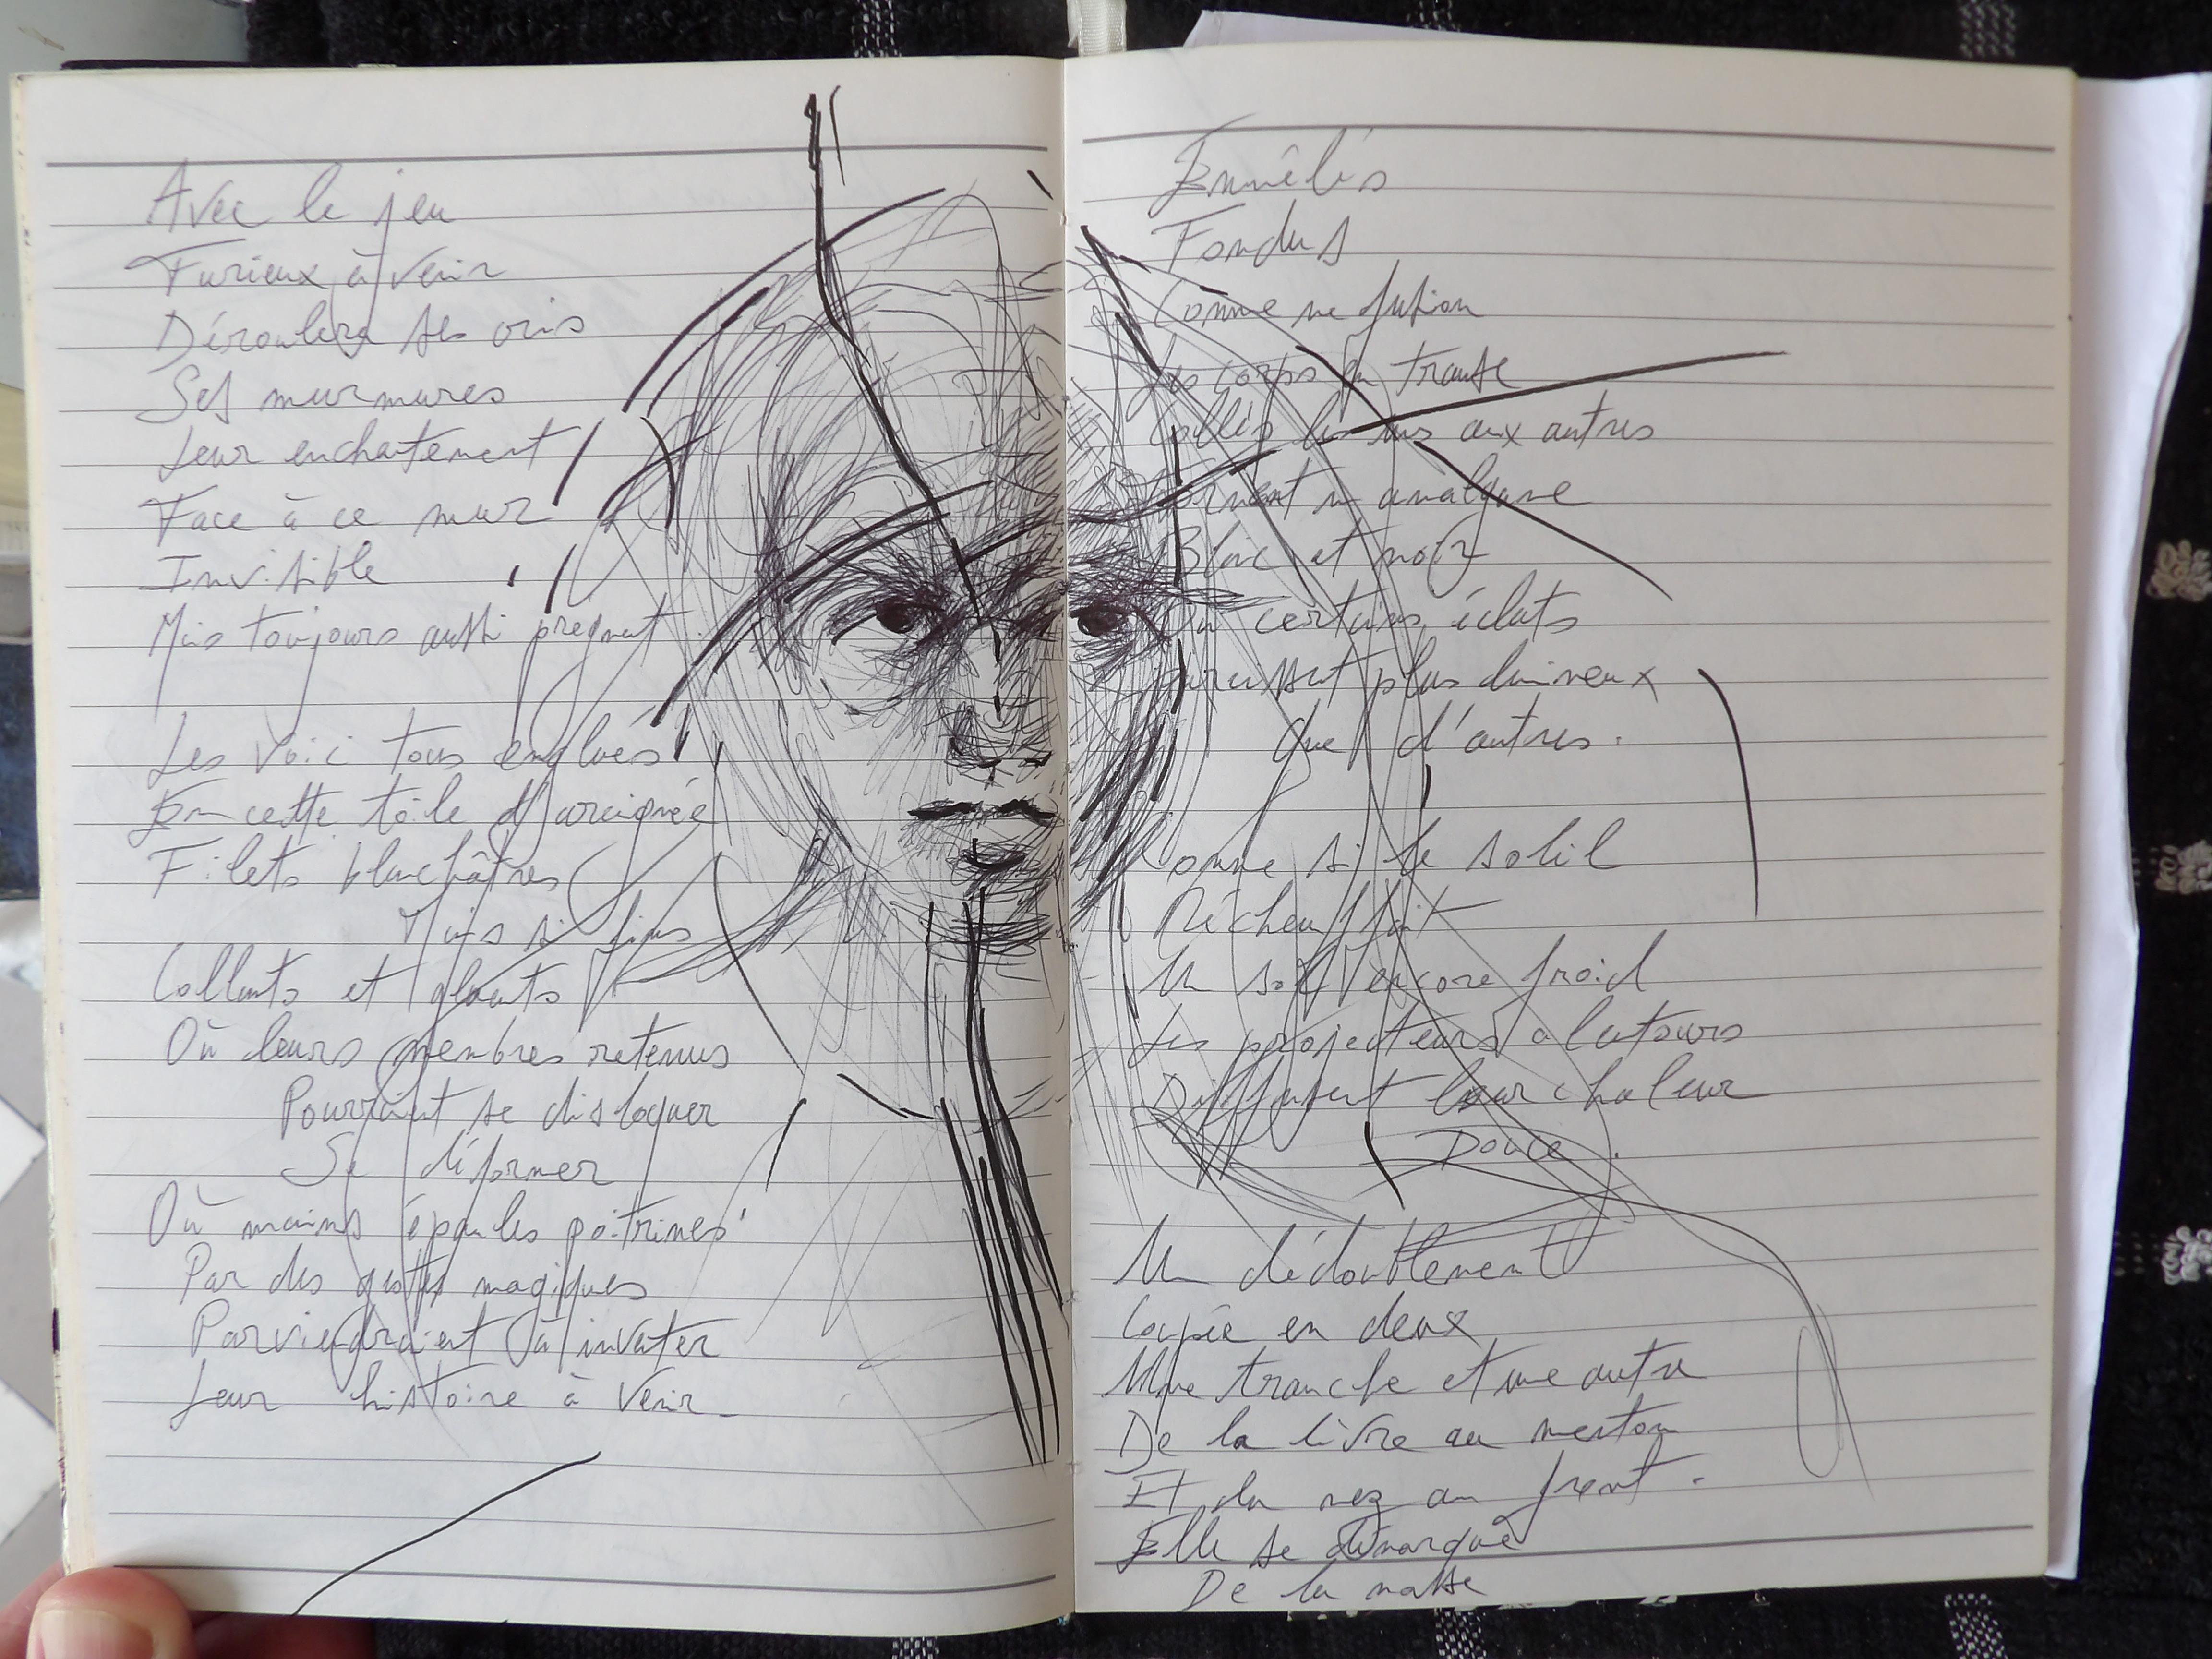 Avec le jeu
Furieux à venir
Déroulera ses cris
Ses murmures
Leur enchantement
Face à ce mur
Invisible
Mais toujours aussi pregnant.
Les voici tous englués
En cette toile d'araignée
Filets blanchâtres
Mais si fins
Collants et gluants
Où leurs membres retenus
Pourraient se disloquer
Se déformer
Où mains épaules poitrines
Par des gestes magiques
Parviendraient à inventer
Leur histoire à venir.
Emmêlés
Fondus
Comme une fusion
Les corps en transe
Collés les uns aux autres
Forment un amalgame
Blanc et noir
Où certains éclats
Paraissent plus lumineux
Que d'autres.
Comme si le soleil
Réchauffait
Un sol encore froid
Les projecteurs alentours
Diffusent leur chaleur
Douce.
Un dédoublement
Coupée en deux
Une tranche et une autre
De la lèvre au menton
Et du nez au front.
Elle se démarque
De la masse